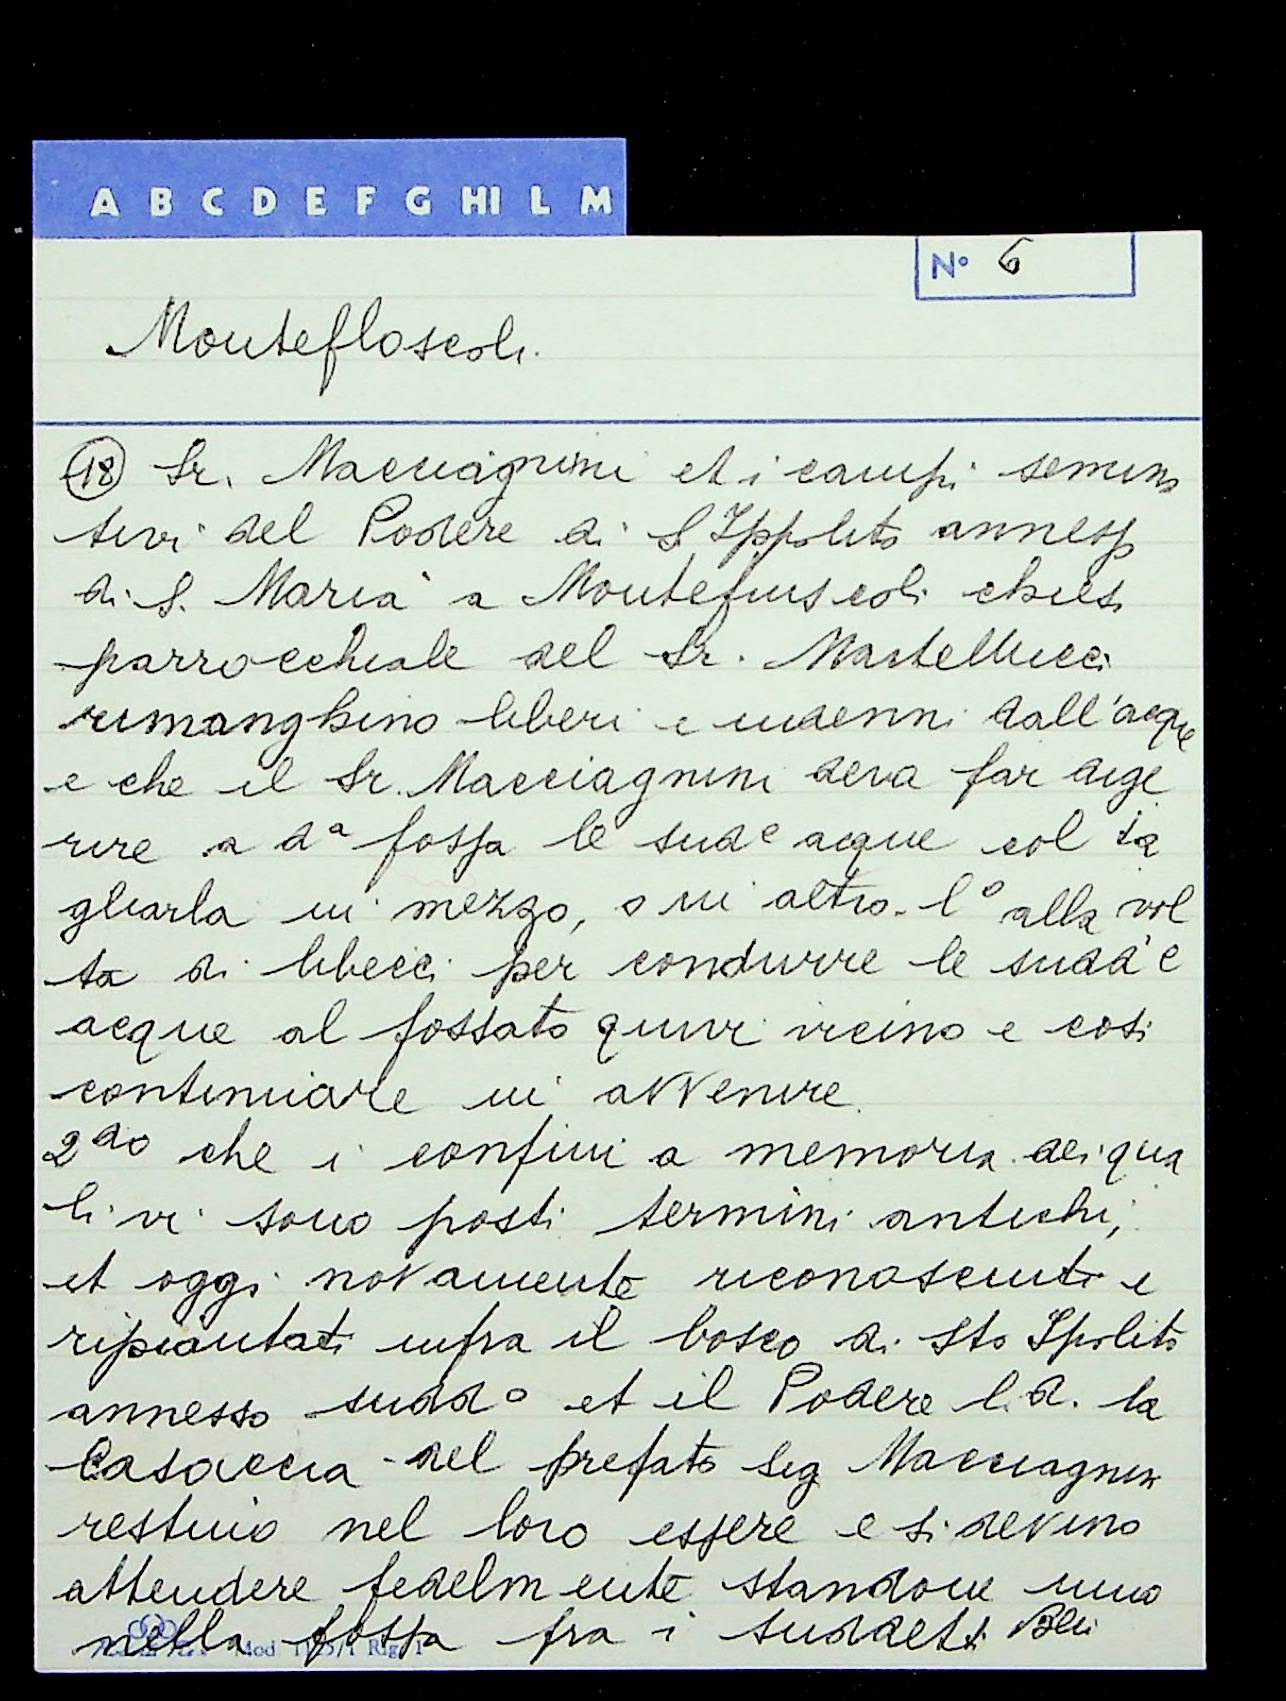 A B C D E F G HI L M
N° 6
Montefloscoli.
18 Sr. Macciagnini et i campi semina
tivi del Podere di S Ippolito annesso
di S. Maria a Montefuscoli chiesa
parrocchiale del Sr. Martellucci
rimanghino liberi e indenni dall'acque
e che il Sr. Macciagnini deva far dige
rire a dª fossa le sudᵉ acque col ta
gliarla in mezzo, o in altro l° alla vol
ta di libecci per condurre le sudd'e
acque al fossato quivi vicino e così
continuare in avvenire.
2do che i confini a memoria dei qua
li vi sono posti termini antichi,
et oggi novamente riconosciuti e
ripiantati infra il bosco di Sto Ipolito
annesso sudd° et il Podere l.d. la
Casaccia del prefato Sig Macciagnini
restino nel loro essere e si devino
attendere fedelmente standone uno
nella fossa fra i suddetti
Mod. Rig. 1